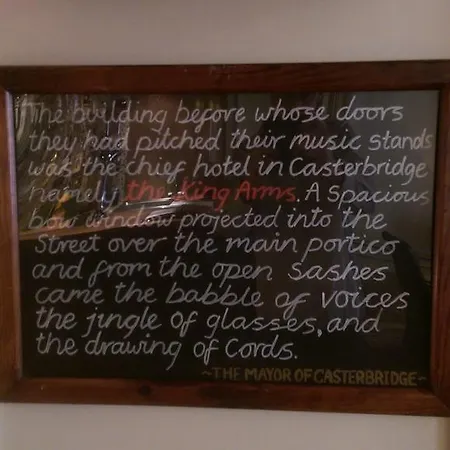 The building before whose doors
they had pitched their music stands
was the chief hotel in Casterbridge
namely the King Arms. A Spacious
bow window projected into the
Street over the main portico
and from the open Sashes
came the babble of voices
the jingle of glasses, and
the drawing of Cords.
~THE MAYOR OF CASTERBRIDGE~